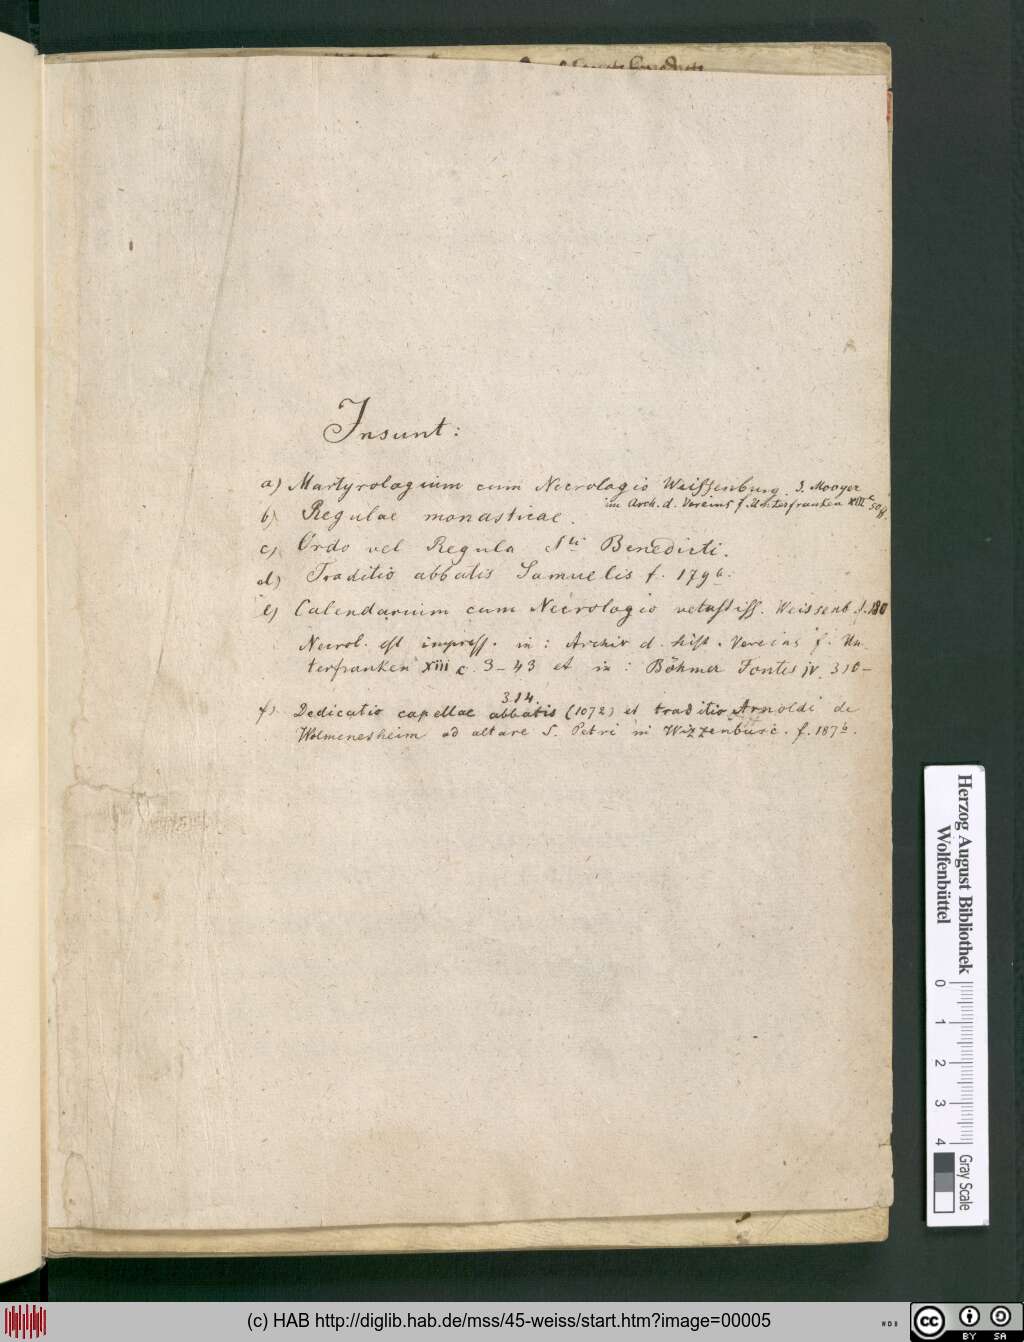 Insunt:
a) Martyrologium cum Necrologio Weissenburg. S. Mooyer
im Arch. d. Vereins f. Unterfranken XIII
b) Regulae monasticae.
c) Ordo vel Regula Sti Benedicti.
d) Traditio abbatis Samuelis f. 179b.
e) Calendarium cum Necrologio vetustiss. Weissenb. f. 180
Necrol. est impress. in: Archiv d. hist. Vereins f. Un
terfranken XIII c. 3-43 et in: Böhmer Fontes IV. 310-
314.
f) Dedicatio capellae abbatis (1072) et traditio Arnoldi de
Wolmenesheim ad altare S. Petri in Wizzenburc. f. 187b.
Herzog August Bibliothek
Wolfenbüttel
0 1 2 3 4
Gray Scale
(c) HAB http://diglib.hab.de/mss/45-weiss/start.htm?image=00005
WDB
cc BY SA